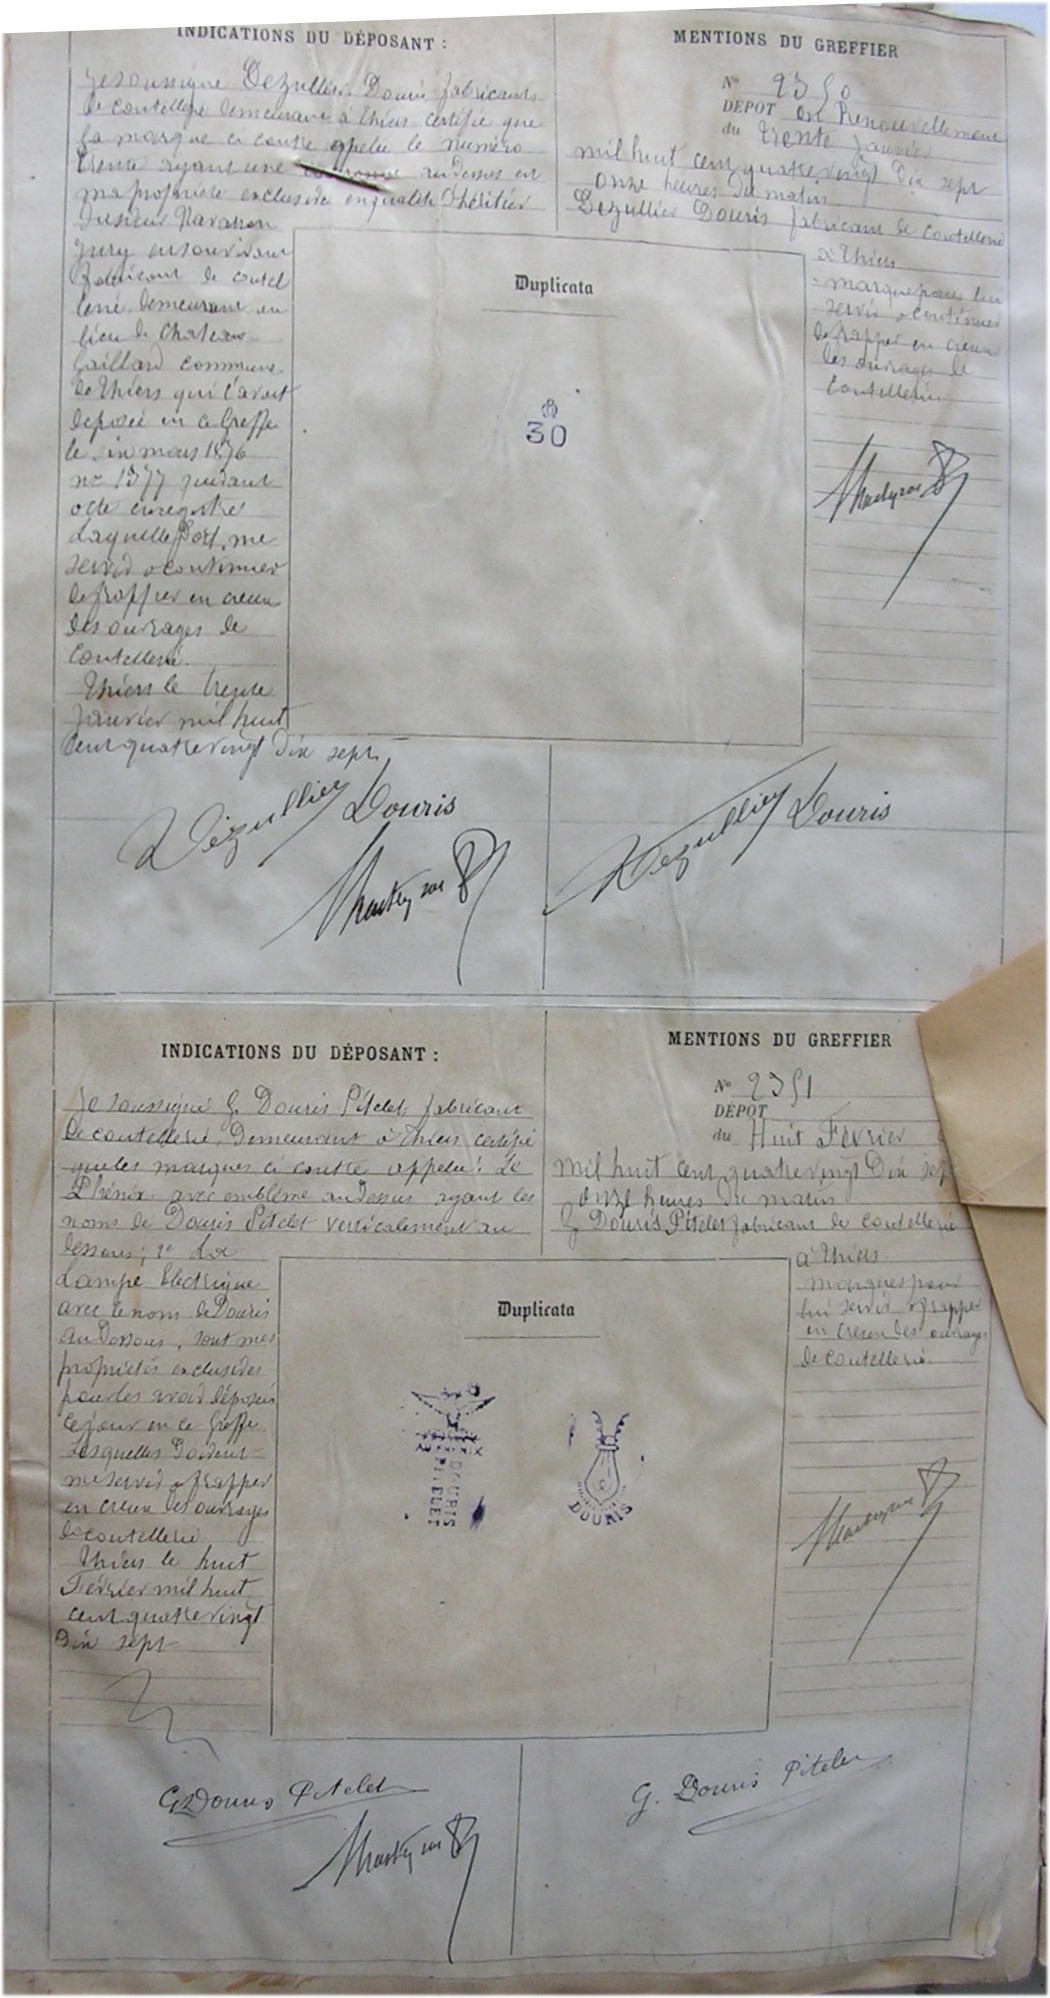 INDICATIONS DU DÉPOSANT :
Je soussigné Dezullier Douris fabricant
de coutellerie demeurant à Thiers certifie que
la marque ci contre appelée le numéro
trente ayant une couronne au dessus est
ma propriété exclusive en qualité d'héritier
du sieur Navaron
Jury en souvivant
fabricant de coutel
lerie demeurant au
lieu de Chateau
Gaillard commune
de Thiers qui l'avait
déposée en ce Greffe
le six mars 1876
no 1377 suivant
acte enregistré
Laquelle doit me
servir a continuer
de frapper en creux
des ouvrages de
Coutellerie.
Thiers le trente
Janvier mil huit
cent quatre vingt dix sept
Dezullier Douris
MENTIONS DU GREFFIER
No 2350
DÉPOT en Renouvellement
du trente Janvier
mil huit cent quatre vingt Dix sept
onze heures du matin
Dezullier Douris fabricant de coutellerie
à Thiers
marque pour lui
servir a continuer
de frapper en creux
des ouvrages de
Coutellerie
Duplicata
30
Dezullier Douris
INDICATIONS DU DÉPOSANT :
Je soussigné G. Douris Pitelet fabricant
de coutellerie, Demeurant à Thiers certifie
que les marques ci contre appelée : Le
Phénix avec emblême au dessus ayant les
noms de Douris Pitelet verticalement au
dessous ; 2e La
Lampe Electrique
avec le nom de Douris
au Dessous, sont mes
propriétés exclusives
pour les avoir déposées
ce jour en ce Greffe
Lesquelles Doivent
me servir a frapper
en creux des ouvrages
de coutellerie
Thiers le huit
Février mil huit
cent quatre vingt
Dix sept
G Douris Pitelet
MENTIONS DU GREFFIER
No 2351
DÉPOT
du Huit Février
mil huit cent quatre vingt Dix sept
onze heures du matin
G Douris Pitelet fabricant de coutellerie
à Thiers
marques pour
lui servir a frapper
en creux des ouvrages
de coutellerie.
Duplicata
AU PHENIX
DOURIS
PITELET
DOURIS
G. Douris Pitelet